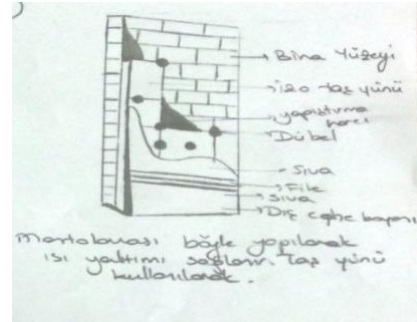 Bina Yüzeyi
izo taş yünü
yapıştırma
harcı
Dübel
Sıva
File
Sıva
Dış cephe boyası
böyle yapılarak
ısı yalıtımı sağlanır. taş yünü
kullanılarak.